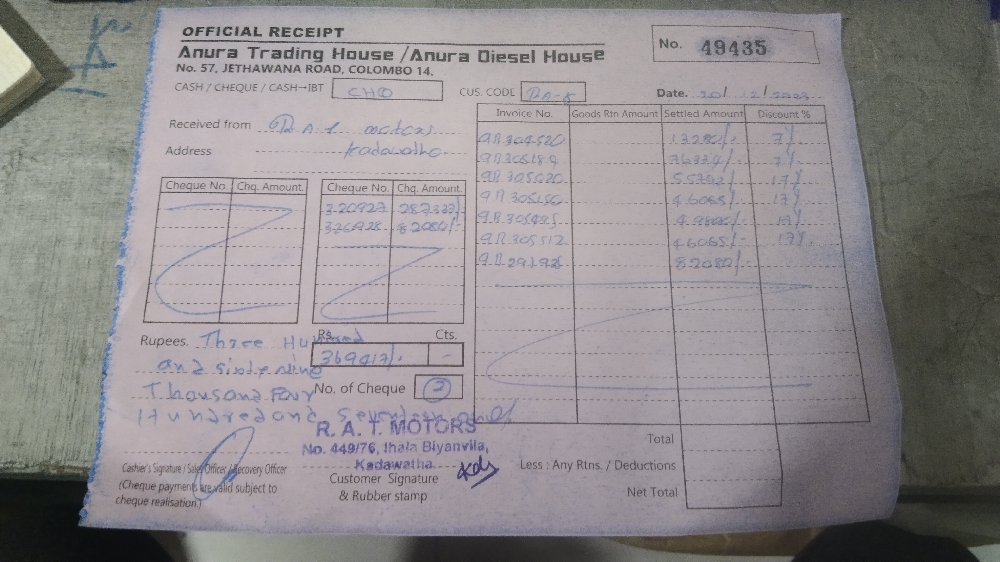 OFFICIAL RECEIPT
Anura Trading House /Anura Diesel House
No. 57, JETHAWANA ROAD, COLOMBO 14.
No. 49435
CASH / CHEQUE / CASH→IBT CHQ
CUS. CODE
Date. 20/12/2023
Received from R.A.T. motors
Address Kadawatha
Cheque No. Chq. Amount
Cheque No. Chq. Amount
320927 287337/-
320928 82080/-
Invoice No. Goods Rtn Amount Settled Amount Discount %
13280/- 7%
76334/- 7%
17%
46065/- 17%
17%
46065/- 17%
82080/-
Rupees. Three Hundred
and sixty nine
Thousand Four
Hundred and Seventeen only
Rs. Cts.
369417/- -
No. of Cheque 2
R. A. T. MOTORS
No. 449/76, Ihala Biyanvila,
Kadawatha.
Cashier's Signature / Sales Officer / Recovery Officer
(Cheque payments are valid subject to
cheque realisation.)
Customer Signature
& Rubber stamp
Total
Less : Any Rtns. / Deductions
Net Total